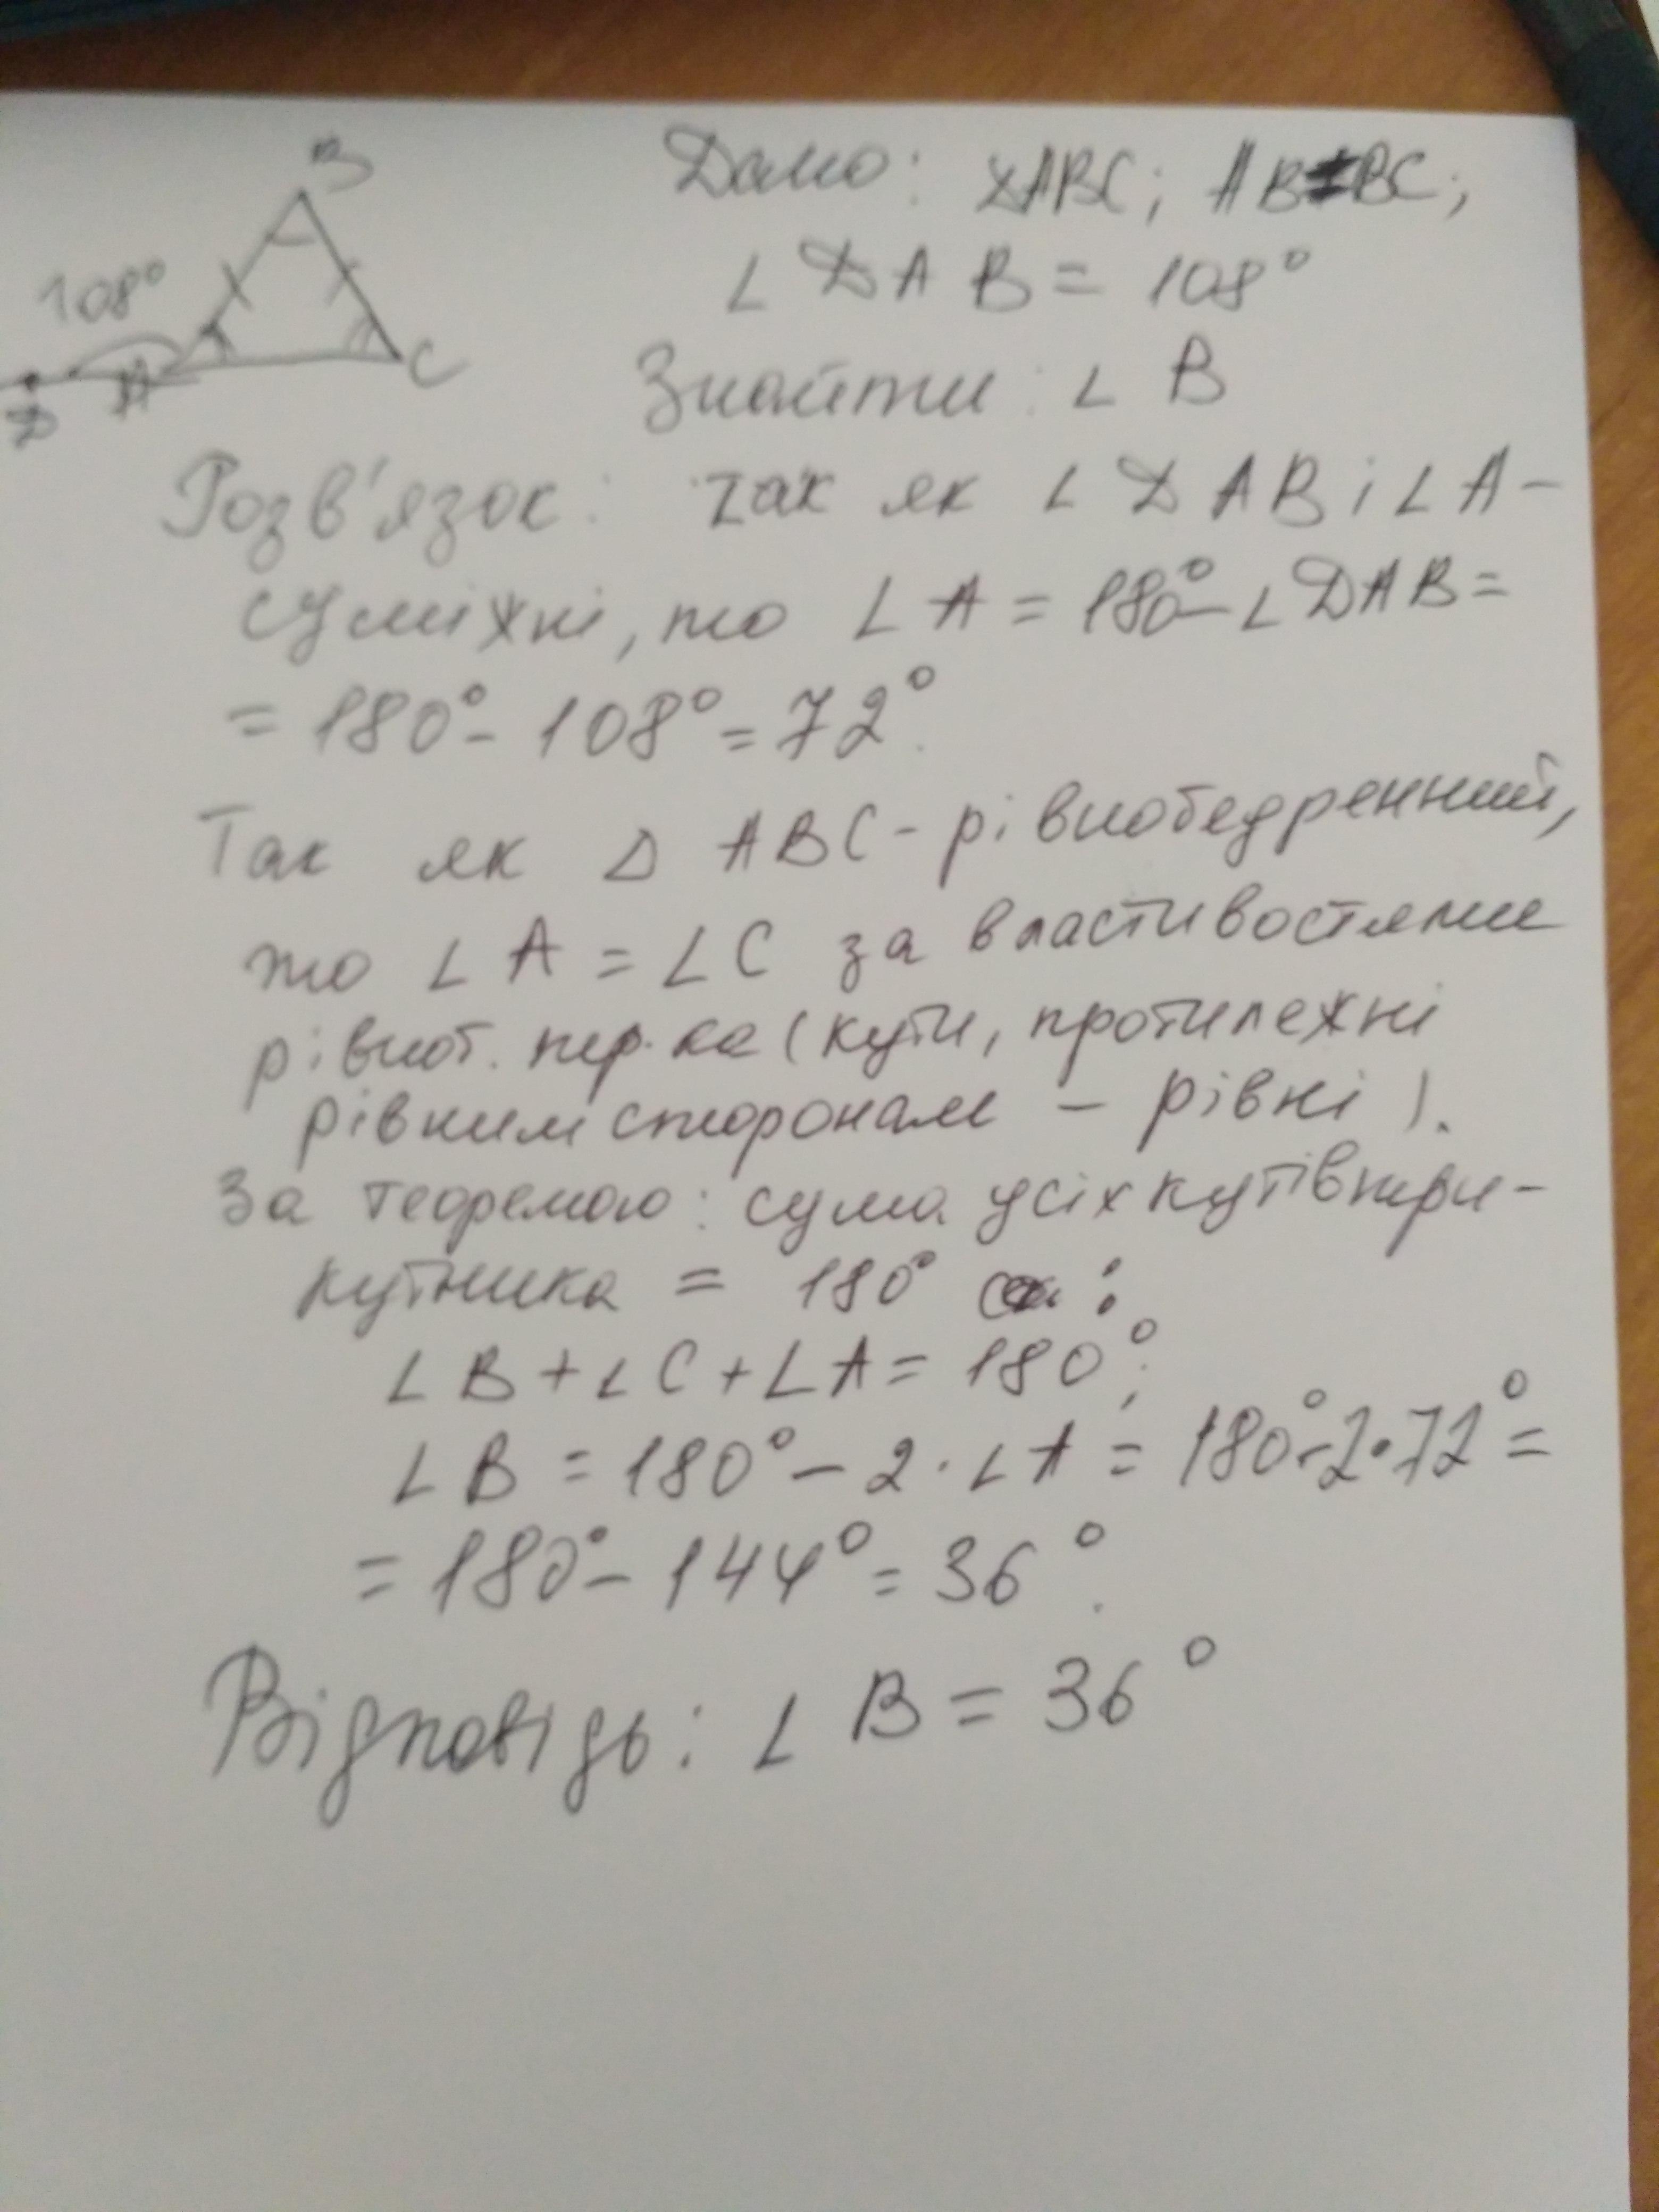 B
108°
D A C
Дано: △ABC; AB=BC;
∠ DAB = 108°
Знайти: ∠ B
Розв'язок: так як ∠ DAB і ∠A -
суміжні, то ∠A = 180° - ∠DAB =
= 180° - 108° = 72°.
Так як △ ABC - рівнобедренний,
то ∠A = ∠C за властивостями
рівноб. тр.ка (кути, протилежні
рівним сторонам - рівні).
За теоремою: сума усіх кутів три-
кутника = 180° :
∠B + ∠C + ∠A = 180°;
∠B = 180° - 2 · ∠A = 180° - 2 · 72° =
= 180° - 144° = 36°.
Відповідь: ∠ B = 36°